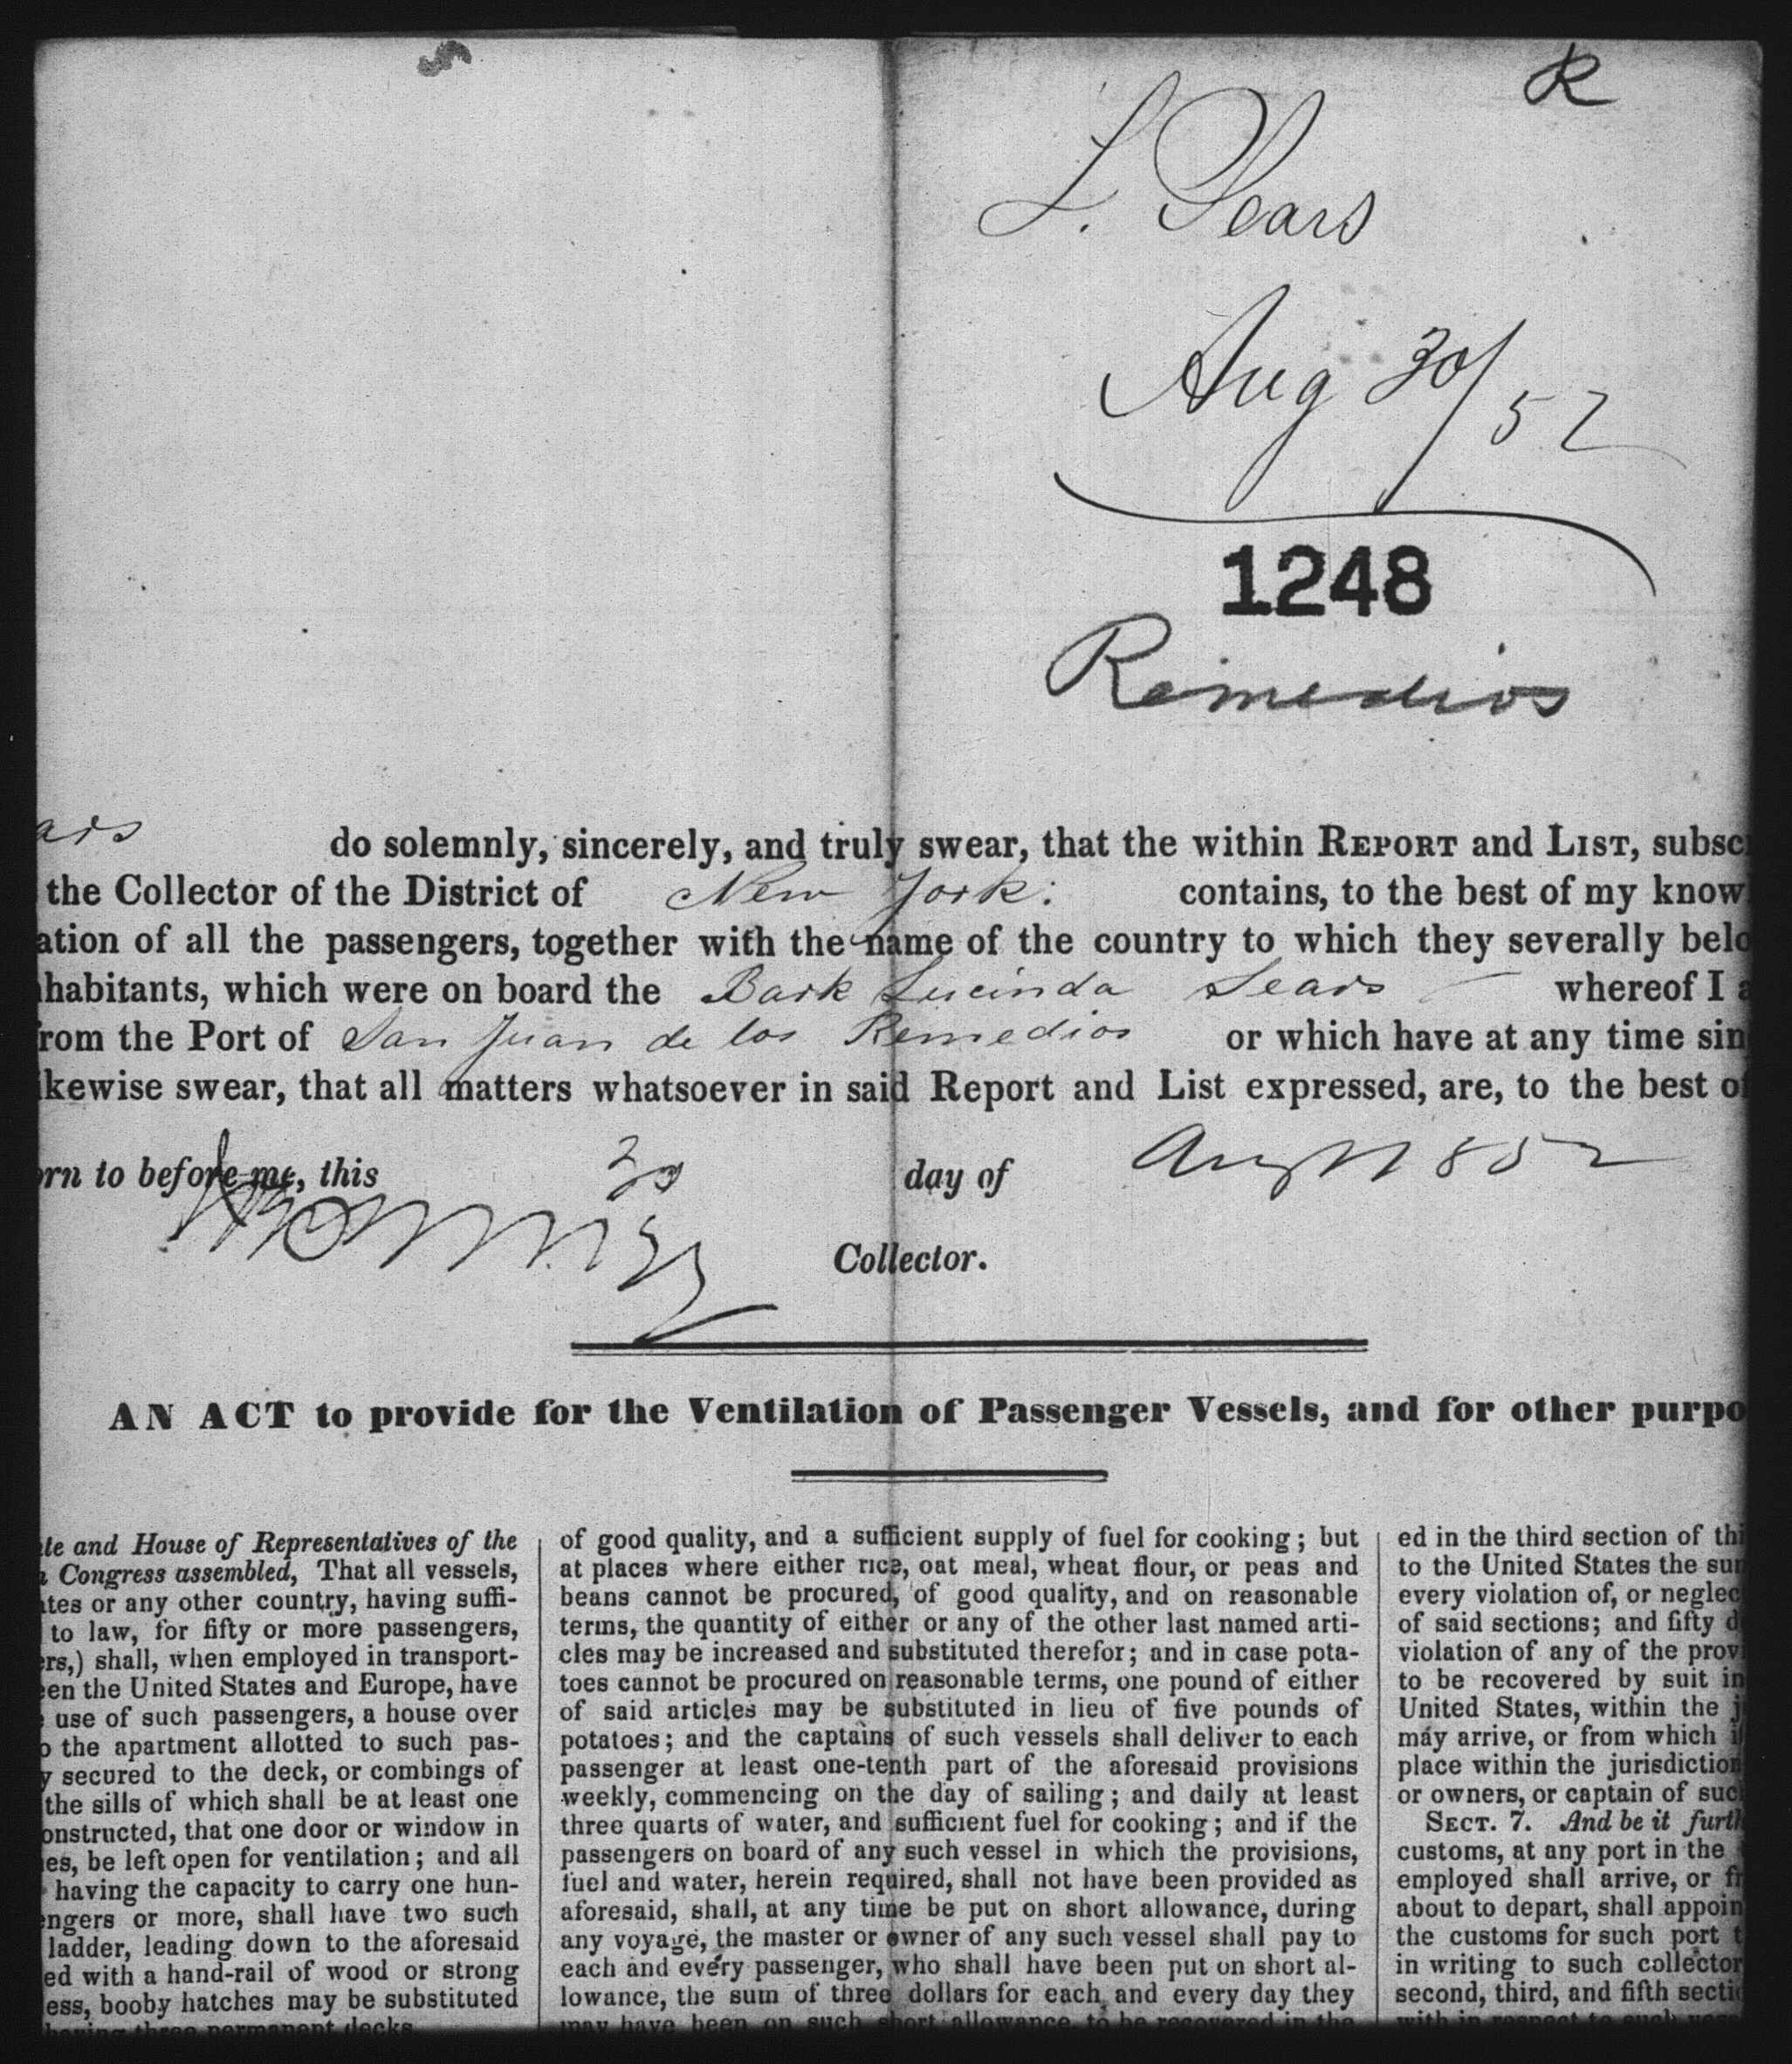 R
L. Sears
Aug 30/52
1248
Remedios
ars do solemnly, sincerely, and truly swear, that the within REPORT and LIST, subsc
the Collector of the District of New York: contains, to the best of my know
ation of all the passengers, together with the name of the country to which they severally belo
habitants, which were on board the Bark Lucinda Sears whereof I a
rom the Port of San Juan de los Remedios or which have at any time sin
ikewise swear, that all matters whatsoever in said Report and List expressed, are, to the best of
orn to before me, this 30 day of Augt 1852
Collector.
AN ACT to provide for the Ventilation of Passenger Vessels, and for other purpo
te and House of Representatives of the
Congress assembled, That all vessels,
tes or any other country, having suffi-
to law, for fifty or more passengers,
rs,) shall, when employed in transport-
en the United States and Europe, have
use of such passengers, a house over
o the apartment allotted to such pas-
y secured to the deck, or combings of
the sills of which shall be at least one
onstructed, that one door or window in
es, be left open for ventilation; and all
having the capacity to carry one hun-
engers or more, shall have two such
ladder, leading down to the aforesaid
ed with a hand-rail of wood or strong
ess, booby hatches may be substituted
having three permanent decks.
of good quality, and a sufficient supply of fuel for cooking; but
at places where either rice, oat meal, wheat flour, or peas and
beans cannot be procured, of good quality, and on reasonable
terms, the quantity of either or any of the other last named arti-
cles may be increased and substituted therefor; and in case pota-
toes cannot be procured on reasonable terms, one pound of either
of said articles may be substituted in lieu of five pounds of
potatoes; and the captains of such vessels shall deliver to each
passenger at least one-tenth part of the aforesaid provisions
weekly, commencing on the day of sailing; and daily at least
three quarts of water, and sufficient fuel for cooking; and if the
passengers on board of any such vessel in which the provisions,
fuel and water, herein required, shall not have been provided as
aforesaid, shall, at any time be put on short allowance, during
any voyage, the master or owner of any such vessel shall pay to
each and every passenger, who shall have been put on short al-
lowance, the sum of three dollars for each and every day they
may have been on such short allowance, to be recovered in the
ed in the third section of thi
to the United States the sum
every violation of, or neglec
of said sections; and fifty d
violation of any of the prov
to be recovered by suit in
United States, within the j
may arrive, or from which i
place within the jurisdiction
or owners, or captain of suc
SECT. 7. And be it furth
customs, at any port in the
employed shall arrive, or fr
about to depart, shall appoin
the customs for such port t
in writing to such collector
second, third, and fifth secti
with in respect to such vess